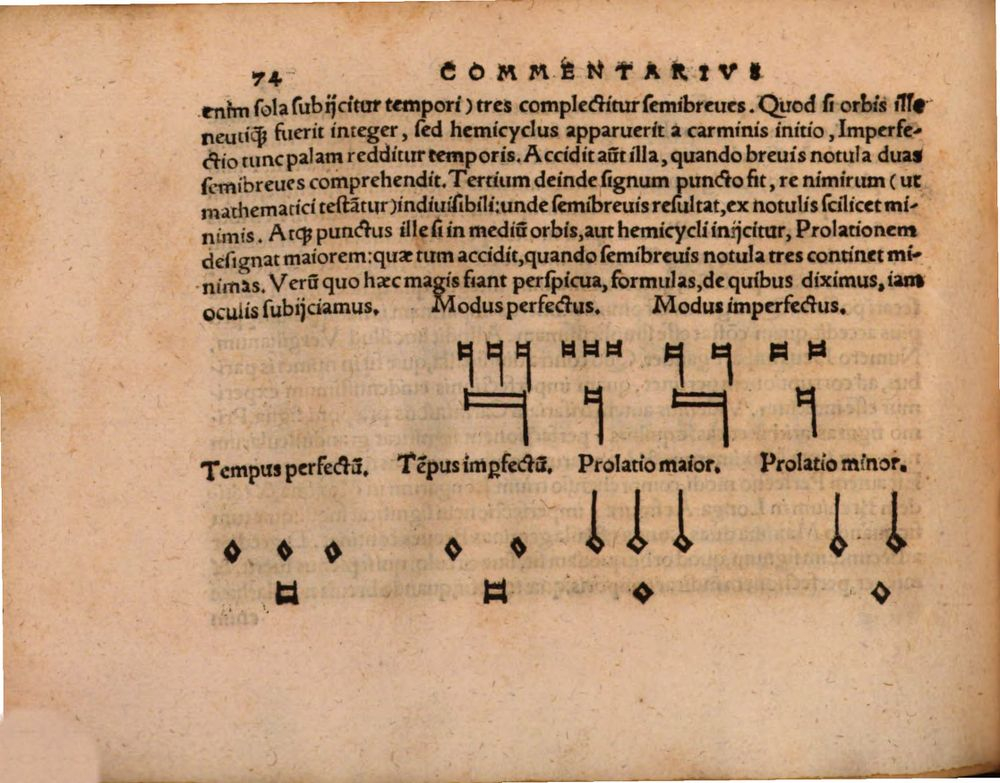 74 COMMENTARIVS
enim sola subijcitur tempori) tres complectitur semibreues. Quod si orbis ille
neutiq̃ fuerit integer, sed hemicyclus apparuerit a carminis initio, Imperfe-
ctio tunc palam redditur temporis. Accidit aũt illa, quando breuis notula duas
semibreues comprehendit. Tertium deinde signum puncto fit, re nimirum (ut
mathematici testãtur) indiuisibili: unde semibreuis resultat, ex notulis scilicet mi-
nimis. Atq; punctus ille si in mediũ orbis, aut hemicycli inijcitur, Prolationem
designat maiorem: quæ tum accidit, quando semibreuis notula tres continet mi-
nimas. Verũ quo hæc magis fiant perspicua, formulas, de quibus diximus, iam
oculis subijciamus. Modus perfectus. Modus imperfectus.
Tempus perfectũ. Tẽpus imꝑfectũ. Prolatio maior. Prolatio minor.